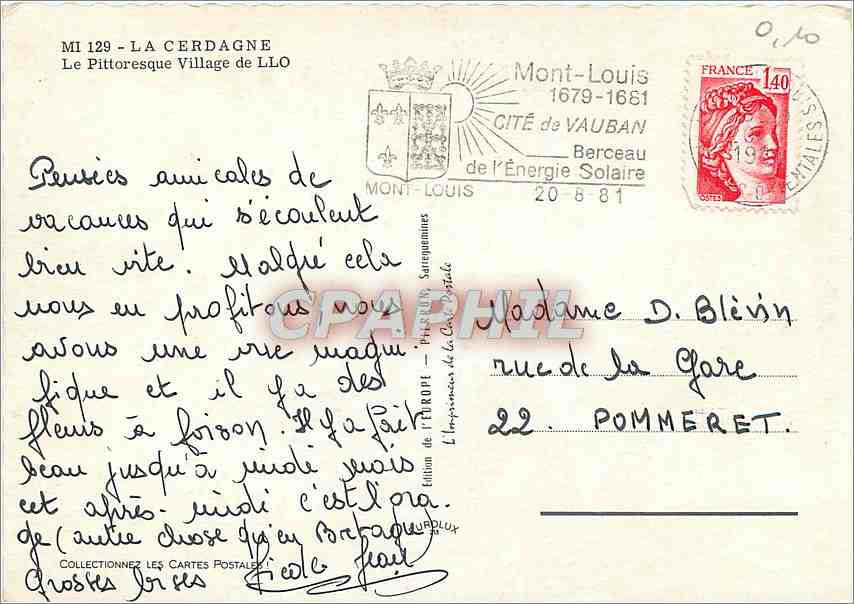 0,10
MI 129 - LA CERDAGNE
Le Pittoresque Village de LLO
Mont-Louis
1679-1681
CITÉ de VAUBAN
Berceau
de l'Énergie Solaire
20-8-81
MONT-LOUIS
FRANCE 1,40
POSTES
Pensées amicales de
vacances qui s'écoulent
bien vite. Malgré cela
nous en profitons nous
avons une vue magni-
fique et il y a des
fleurs à foison. Il y a fait
beau jusqu'à midi mais
cet après-midi c'est l'ora-
ge (autre chose qu'en Bretagne
Grosses bises Nicole Jean
Edition de l'EUROPE — PIERRON, Sarreguemines
L'Imprimeur de la Carte Postale
CPARPHIL
Madame D. Blévin
rue de la Gare
22. POMMERET.
EUROLUX
COLLECTIONNEZ LES CARTES POSTALES !